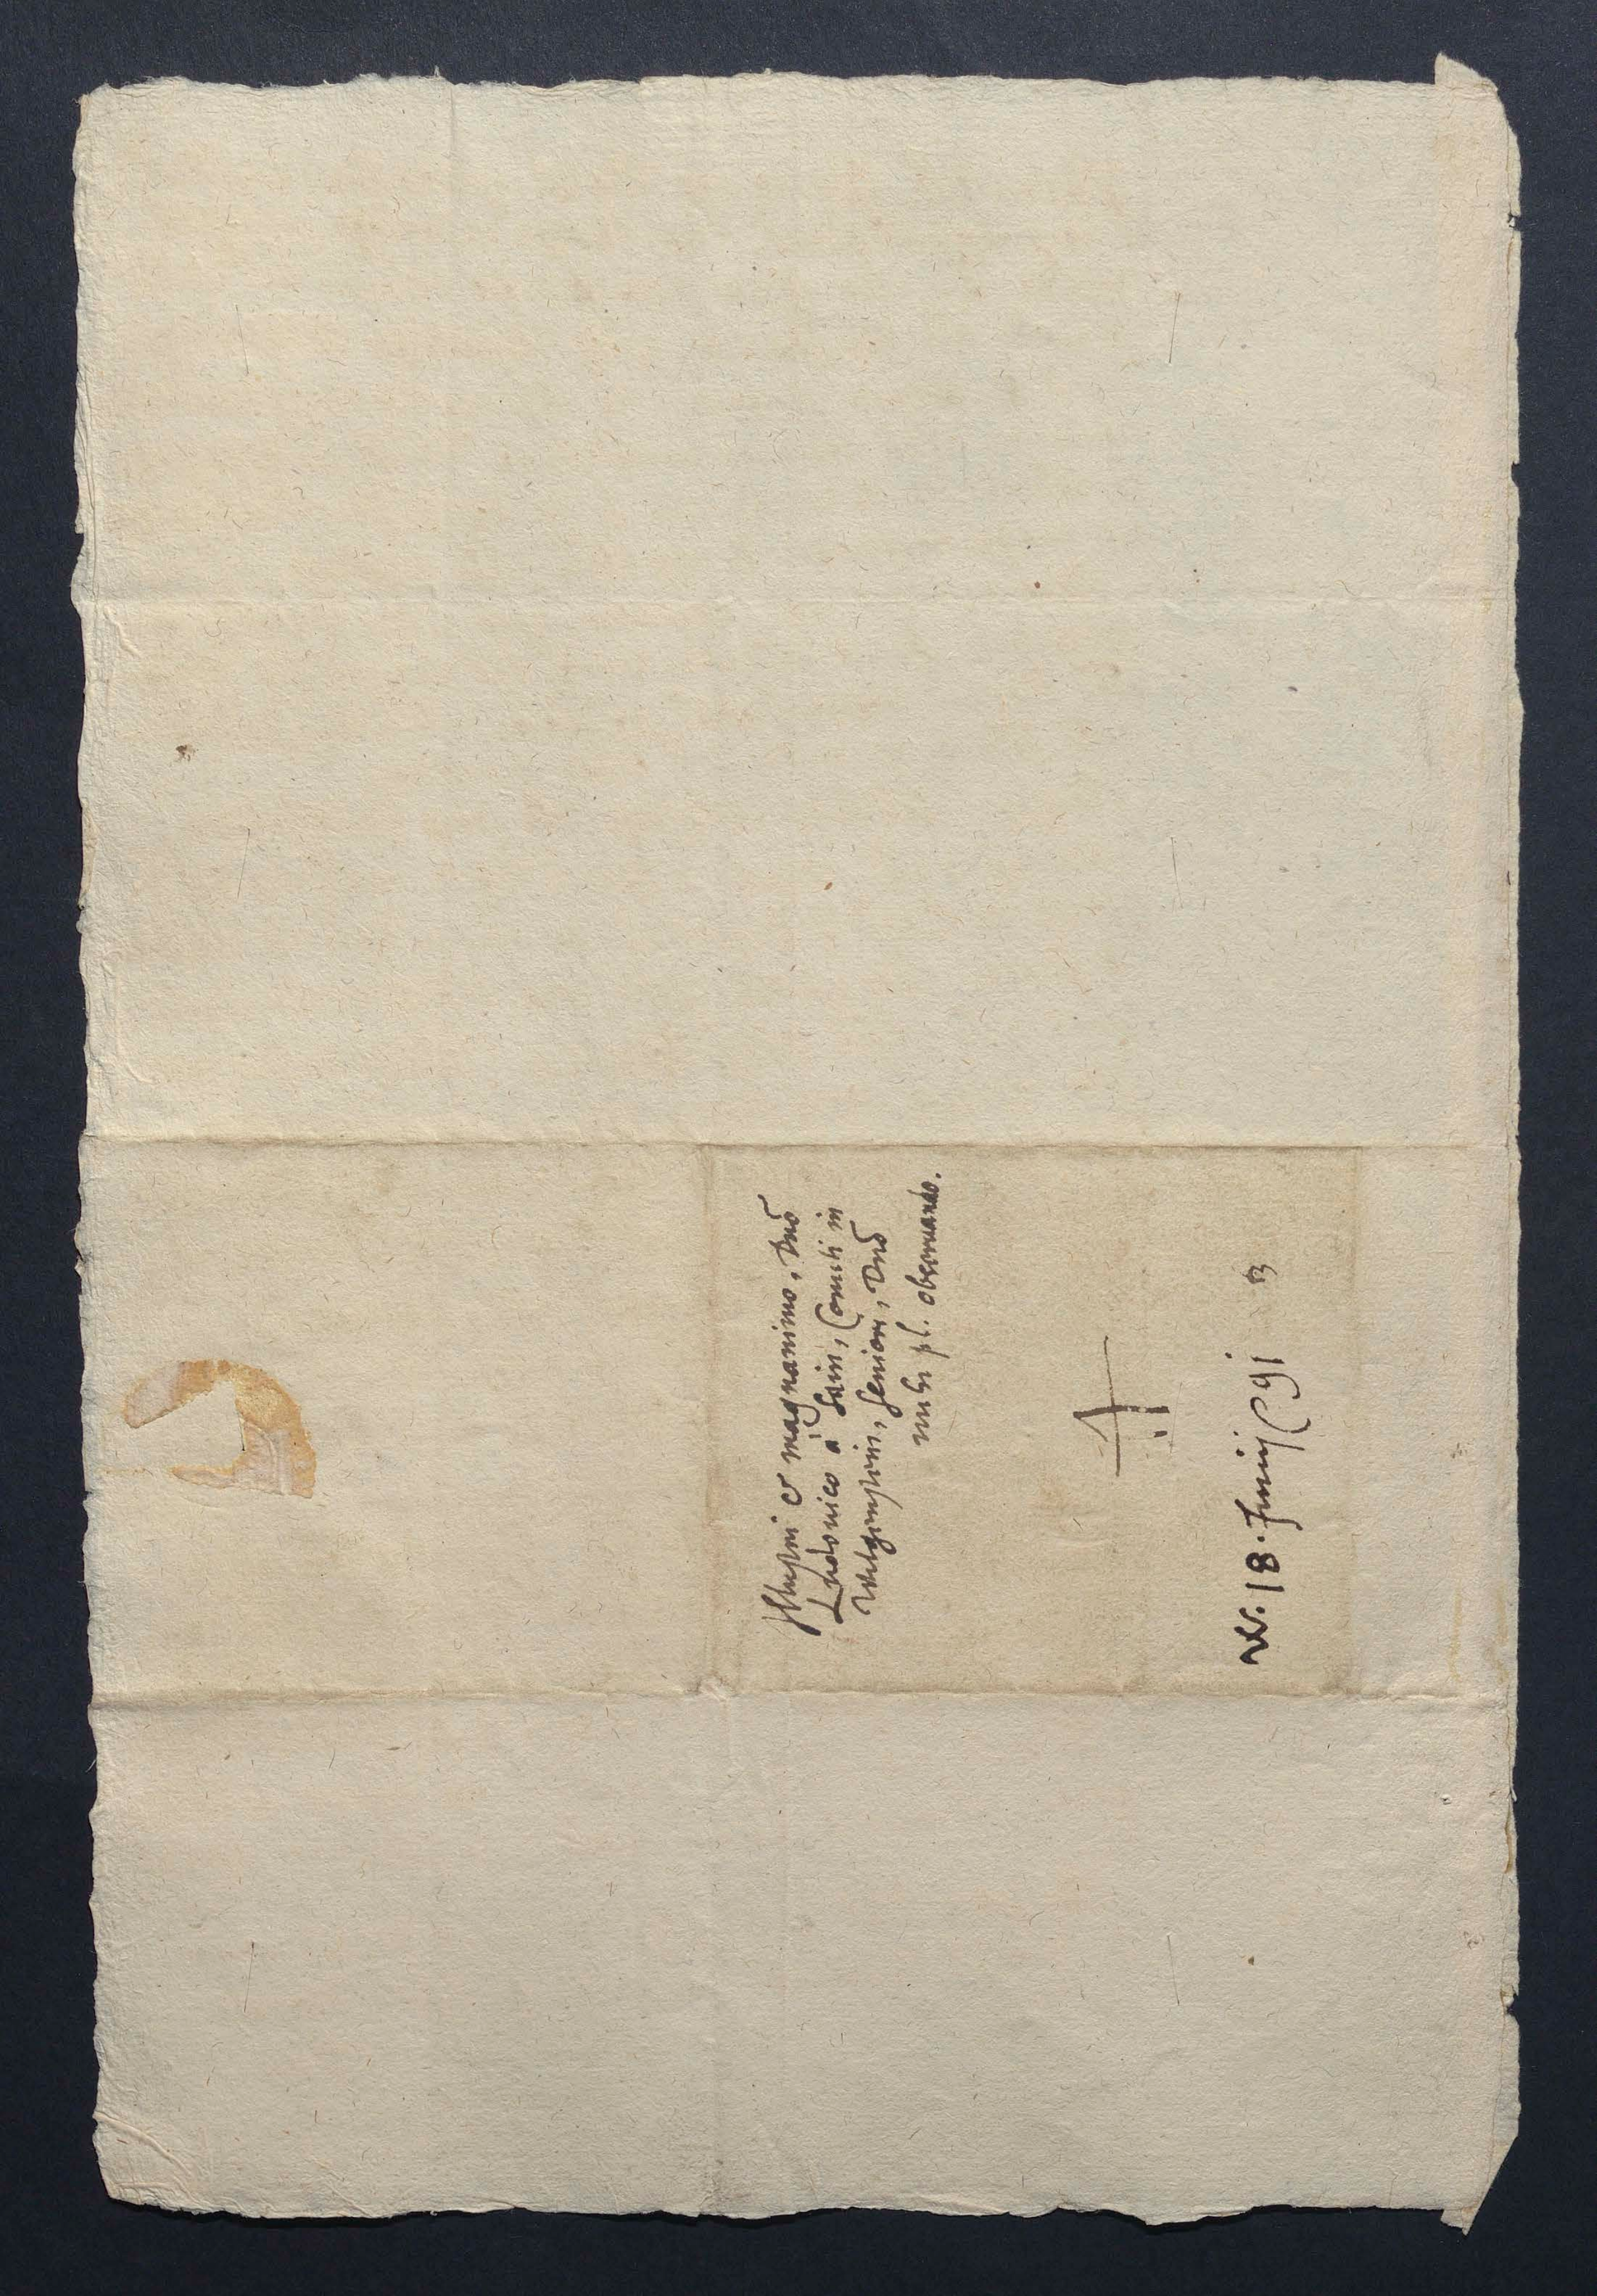 Illustri & magnanimo, Dnō
Ludovico à Sain, Comiti in
Witgenstein, Seniori, Dnō
mihi pl. observando.
18. Junij 91